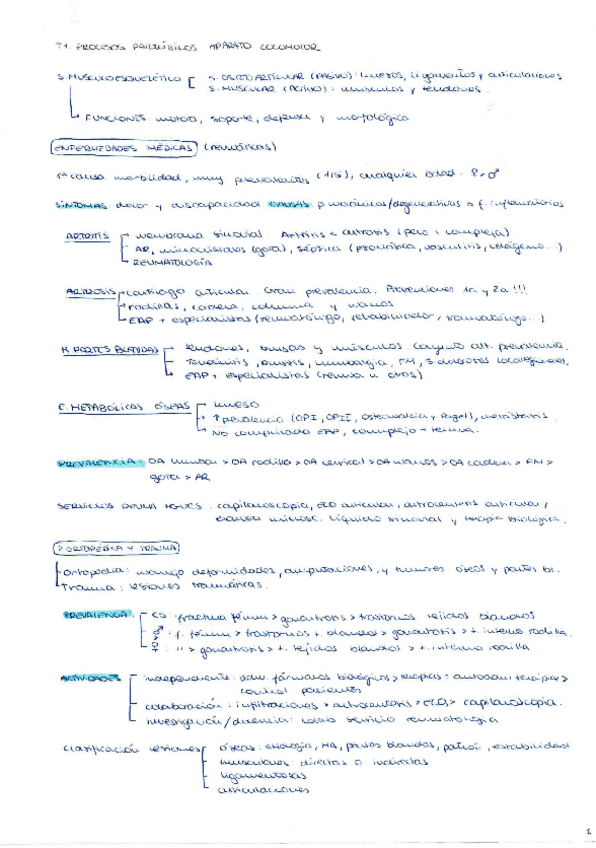 T1. PROCESOS PATOLÓGICOS APARATO LOCOMOTOR
S. MUSCULOESQUELÉTICO S. OSTEOARTICULAR (PASIVO): huesos, ligamentos y articulaciones
S. MUSCULAR (ACTIVO): músculos y tendones.
FUNCIONES: motora, soporte, defensa y morfológica
ENFERMEDADES MÉDICAS (reumáticas)
1ª causa morbilidad, muy prevalentes (1/5), cualquier edad. ♀>♂
SÍNTOMAS: dolor y discapacidad CAUSAS: p. mecánicos/degenerativos o f. inflamatorios
ARTRITIS membrana sinovial. Artritis < artrosis (pero + compleja)
AR, microcristales (gota), séptica (psoriásica, vasculitis, colágeno...)
REUMATOLOGÍA
ARTROSIS cartílago articular. Gran prevalencia. Prevenciones 1ª y 2ª !!!
rodillas, cadera, columna y manos
EAP + especialistas (reumatólogo, rehabilitador, traumatólogo...)
R. PARTES BLANDAS tendones, bursas y músculos. Conjunto alt. prevalencia.
Tendinitis, bursitis, lumbalgia, FM, S. dolorosos locoregionales.
EAP + especialistas (reuma u otros)
E. METABÓLICAS ÓSEAS hueso
↑ prevalencia (OPI, OPII, osteomalacia y Paget), metástasis.
No complicada EAP, complejo → reuma.
PREVALENCIA: OA lumbar > OA rodilla > OA cervical > OA manos > OA cadera > FM >
gota > AR
capilaroscopia, ECO articular, artrocentesis articular /
examen microsc. líquido sinovial y terapia biológica.
ORTOPEDIA Y TRAUMA
Ortopedia: manejo deformidades, amputaciones, y tumores óseos y partes bl.
Trauma: lesiones traumáticas.
PREVALENCIA: fractura fémur > gonartrosis > trastornos tejidos blandos
♂: f. fémur > trastornos t. blandos > gonartrosis > t. interno rodilla.
♀: " > gonartrosis > t. tejidos blandos > t. interno rodilla
ACTIVIDADES independiente: adm. fármacos biológicos > terapias
control pacientes
colaboración: infiltraciones > artrocentesis > ECO > capilaroscopia.
investigación/docencia: servicio reumatología
Clasificación lesiones óseas: etiología, partes blandas, patrón, estabilidad
musculares: directas o indirectas
ligamentosas
articulaciones
1